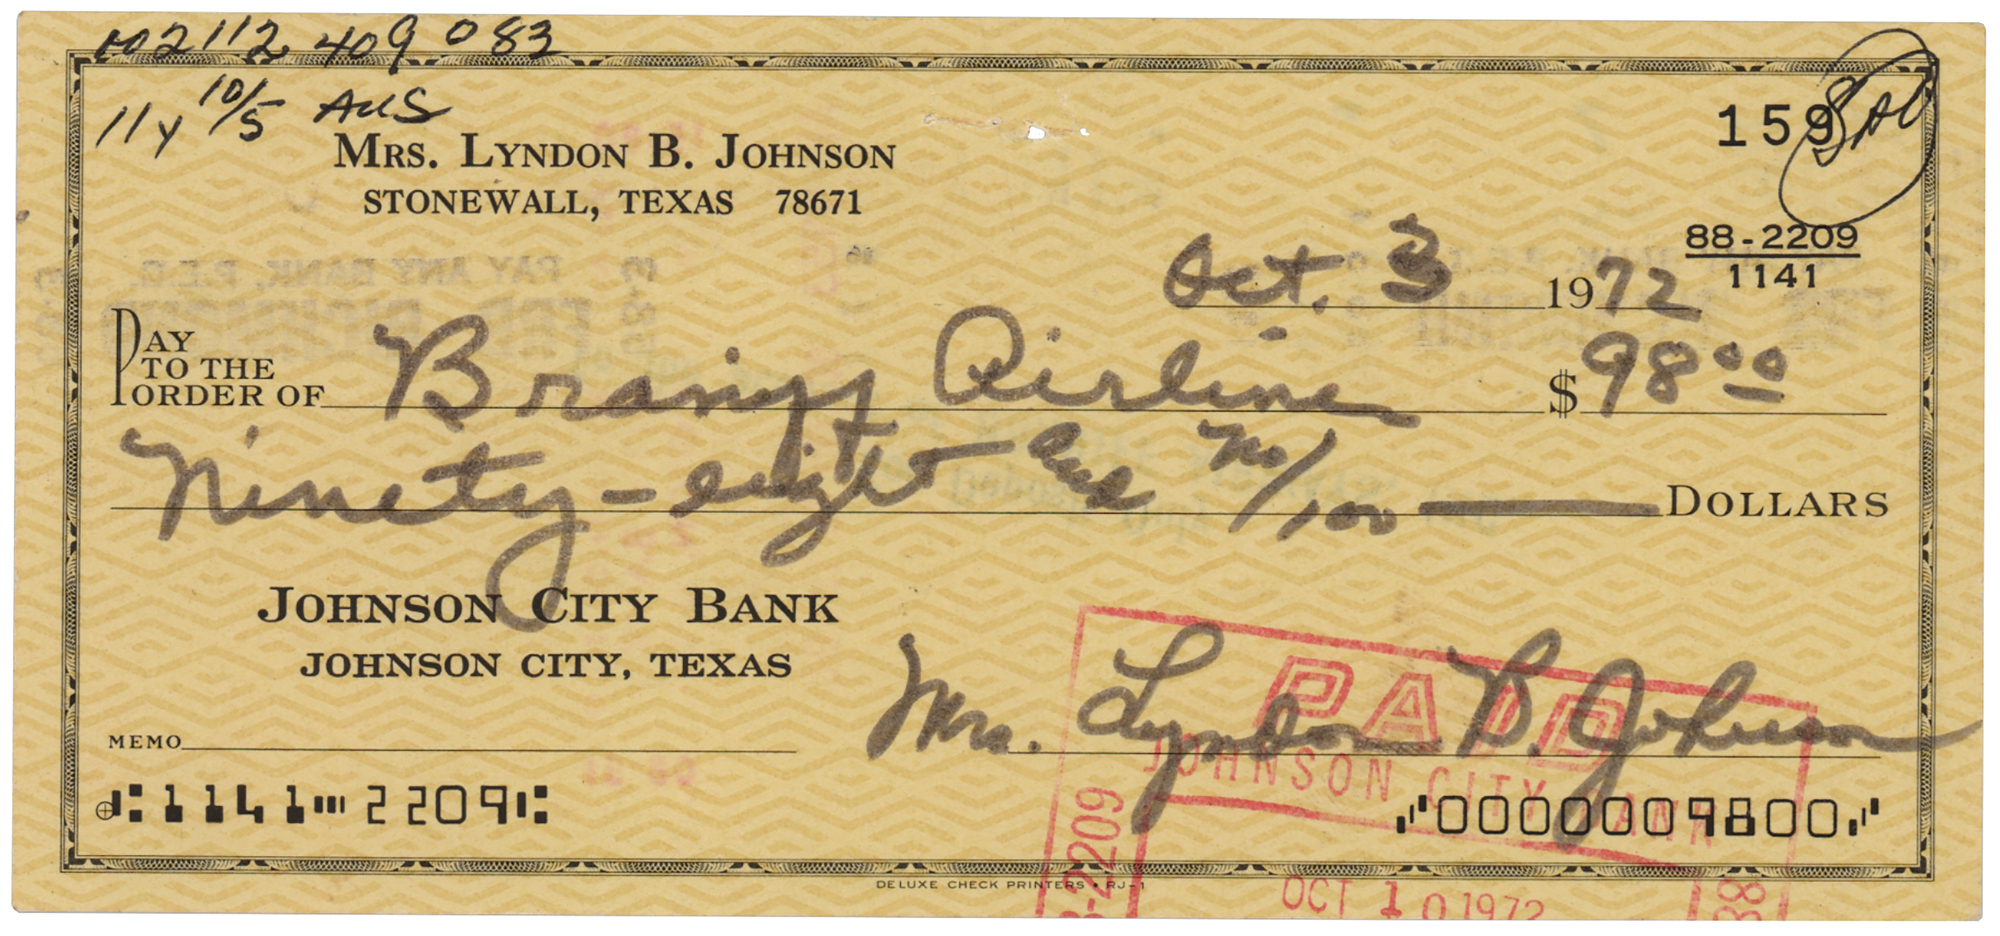 002112 409 083
11y 10/5 AUS
159
MRS. LYNDON B. JOHNSON
STONEWALL, TEXAS 78671
88-2209
1141
Oct. 3 1972
PAY TO THE ORDER OF Braniff Airlines $ 98 00
Ninety-eight and no/100 DOLLARS
JOHNSON CITY BANK
JOHNSON CITY, TEXAS
Mrs. Lyndon B. Johnson
MEMO
PAID
JOHNSON CITY BANK
88-2209
OCT 10 1972
1141 2209
0000009800
DELUXE CHECK PRINTERS • RJ-1